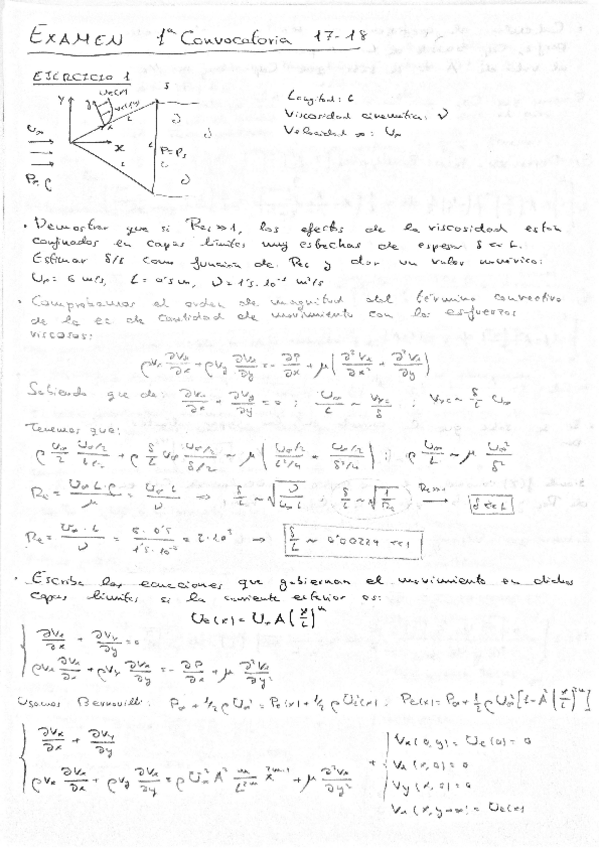 EXAMEN 1ª Convocatoria 17-18
EJERCICIO 1
Longitud: L
Viscosidad cinemática: ν
Velocidad ∞: U∞
Y
X
U∞
P∞, ρ
P=Ps
• Demostrar que si Re >> 1, los efectos de la viscosidad están
confinados en capas límites muy estrechas de espesor δ << L.
Estimar δ/L como función de Re y dar un valor numérico:
U∞ = 6 m/s, L = 0'5 m, ν = 1'5·10⁻⁵ m²/s
• Comparamos el orden de magnitud del término convectivo
de la ec de cantidad de movimiento con los esfuerzos
viscosos:
ρ vx ∂vx/∂x + ρ vy ∂vx/∂y = - ∂P/∂x + μ ( ∂²vx/∂x² + ∂²vx/∂y )
Sabiendo que de: ∂vx/∂x + ∂vy/∂y = 0 ; U∞/L ~ vyc/δ ; vyc ~ δ/L U∞
Tenemos que:
ρ U∞/2 (U∞/2)/(L/2) + ρ δ/L U∞ (U∞/2)/(δ/2) ~ μ ( (U∞/2)/(L²/4) + (U∞/2)/(δ²/4) ) ;
Re = U∞ L ρ / μ = U∞ L / ν ⇒ δ/L ~ √(ν/(U∞ L)) ; δ/L ~ √(1/Re) Re>>1 → δ << L
δ/L ~ 0'00224 << 1
• Escriba las ecuaciones que gobiernan el movimiento en dichas
capas límites si la corriente exterior es:
Ue(x) = U∞ A (x/L)ⁿ
∂vx/∂x + ∂vy/∂y = 0
ρ vx ∂vx/∂x + ρ vy ∂vx/∂y = - ∂P/∂x + μ ∂²vx/∂y²
Usamos Bernouilli: P∞ + 1/2 ρ U∞² = Pe(x) + 1/2 ρ Ue²(x) ; Pe(x) = P∞ + 1/2 ρ U∞² [1 - A² (x/L)²ⁿ]
∂vx/∂x + ∂vy/∂y
vx(0,y) = Ue(0) = 0
vx(x,0) = 0
vy(x,0) = 0
vx(x,y→∞) = Ue(x)